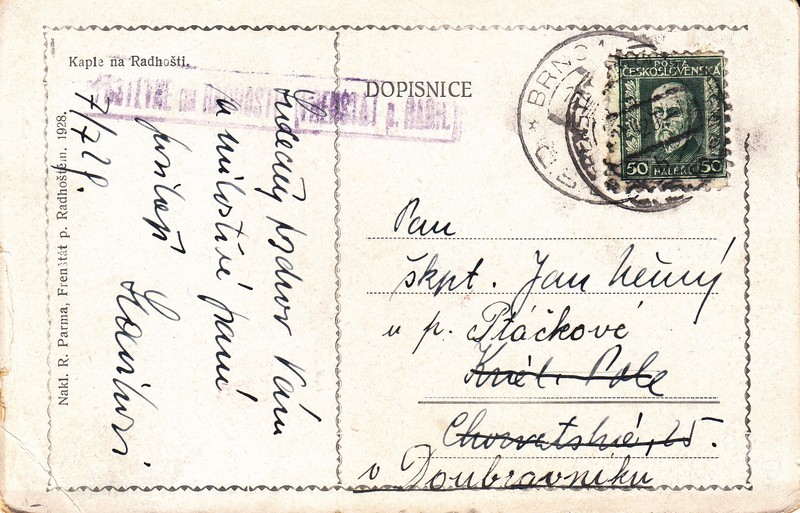 Kaple na Radhošti.
PUSTEVNĚ na RADHOŠTI (FRENŠTÁT p. RADH.)
DOPISNICE
BRNO
POŠTA
ČESKOSLOVENSKÁ
50 HALÉŘŮ 50
Nakl. R. Parma, Frenštát p. Radhoštěm. 1928.
Srdečný pozdrav Vám
a milostivé paní
posílají
7/7 28.
Pan
škpt. Jan Němý
u p. Ptáčkové
Král. Pole
Chorvatská, 25.
v Doubravníku